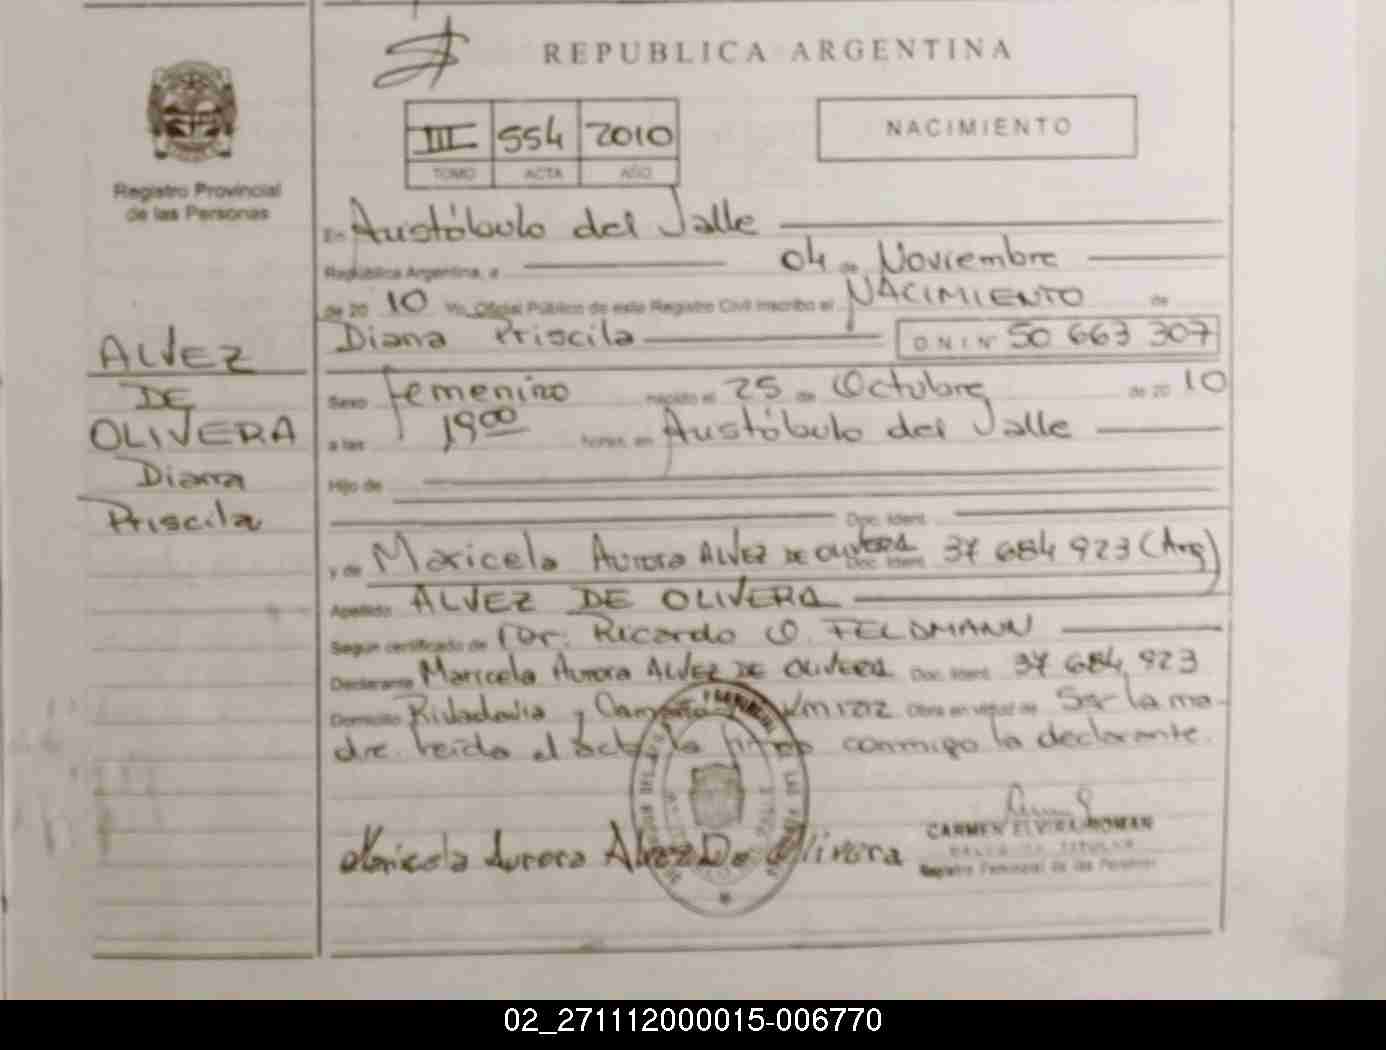 REPUBLICA ARGENTINA
III 554 2010
TOMO ACTA AÑO
NACIMIENTO
Registro Provincial
de las Personas
En Aristóbulo del Valle
República Argentina, a 04 de Noviembre
de 20 10 Yo, Oficial Público de este Registro Civil inscribo el NACIMIENTO de
Diana Priscila D N I N° 50 663 307
ALVEZ
DE
OLIVERA
Diana
Priscila
Sexo femenino nacido el 25 de Octubre de 20 10
a las 19 00 horas, en Aristóbulo del Valle
Hijo de
Doc. Ident.
y de Maricela Aurora ALVEZ DE OLIVERA Doc. Ident. 37 684 923 (Arg)
Apellido ALVEZ DE OLIVERA
Según certificado de Dr. Ricardo O. FELDMANN
Declarante Maricela Aurora ALVEZ DE OLIVERA Doc. Ident. 37 684 923
Domicilio Rivadavia y Km 1212 Obra en virtud de Ser la ma-
dre. leída el acta la firma conmigo la declarante.
Maricela Aurora Alvez De Olivera
CARMEN ELVIRA ROMAN
TITULAR
Registro Provincial de las Personas
02_271112000015-006770